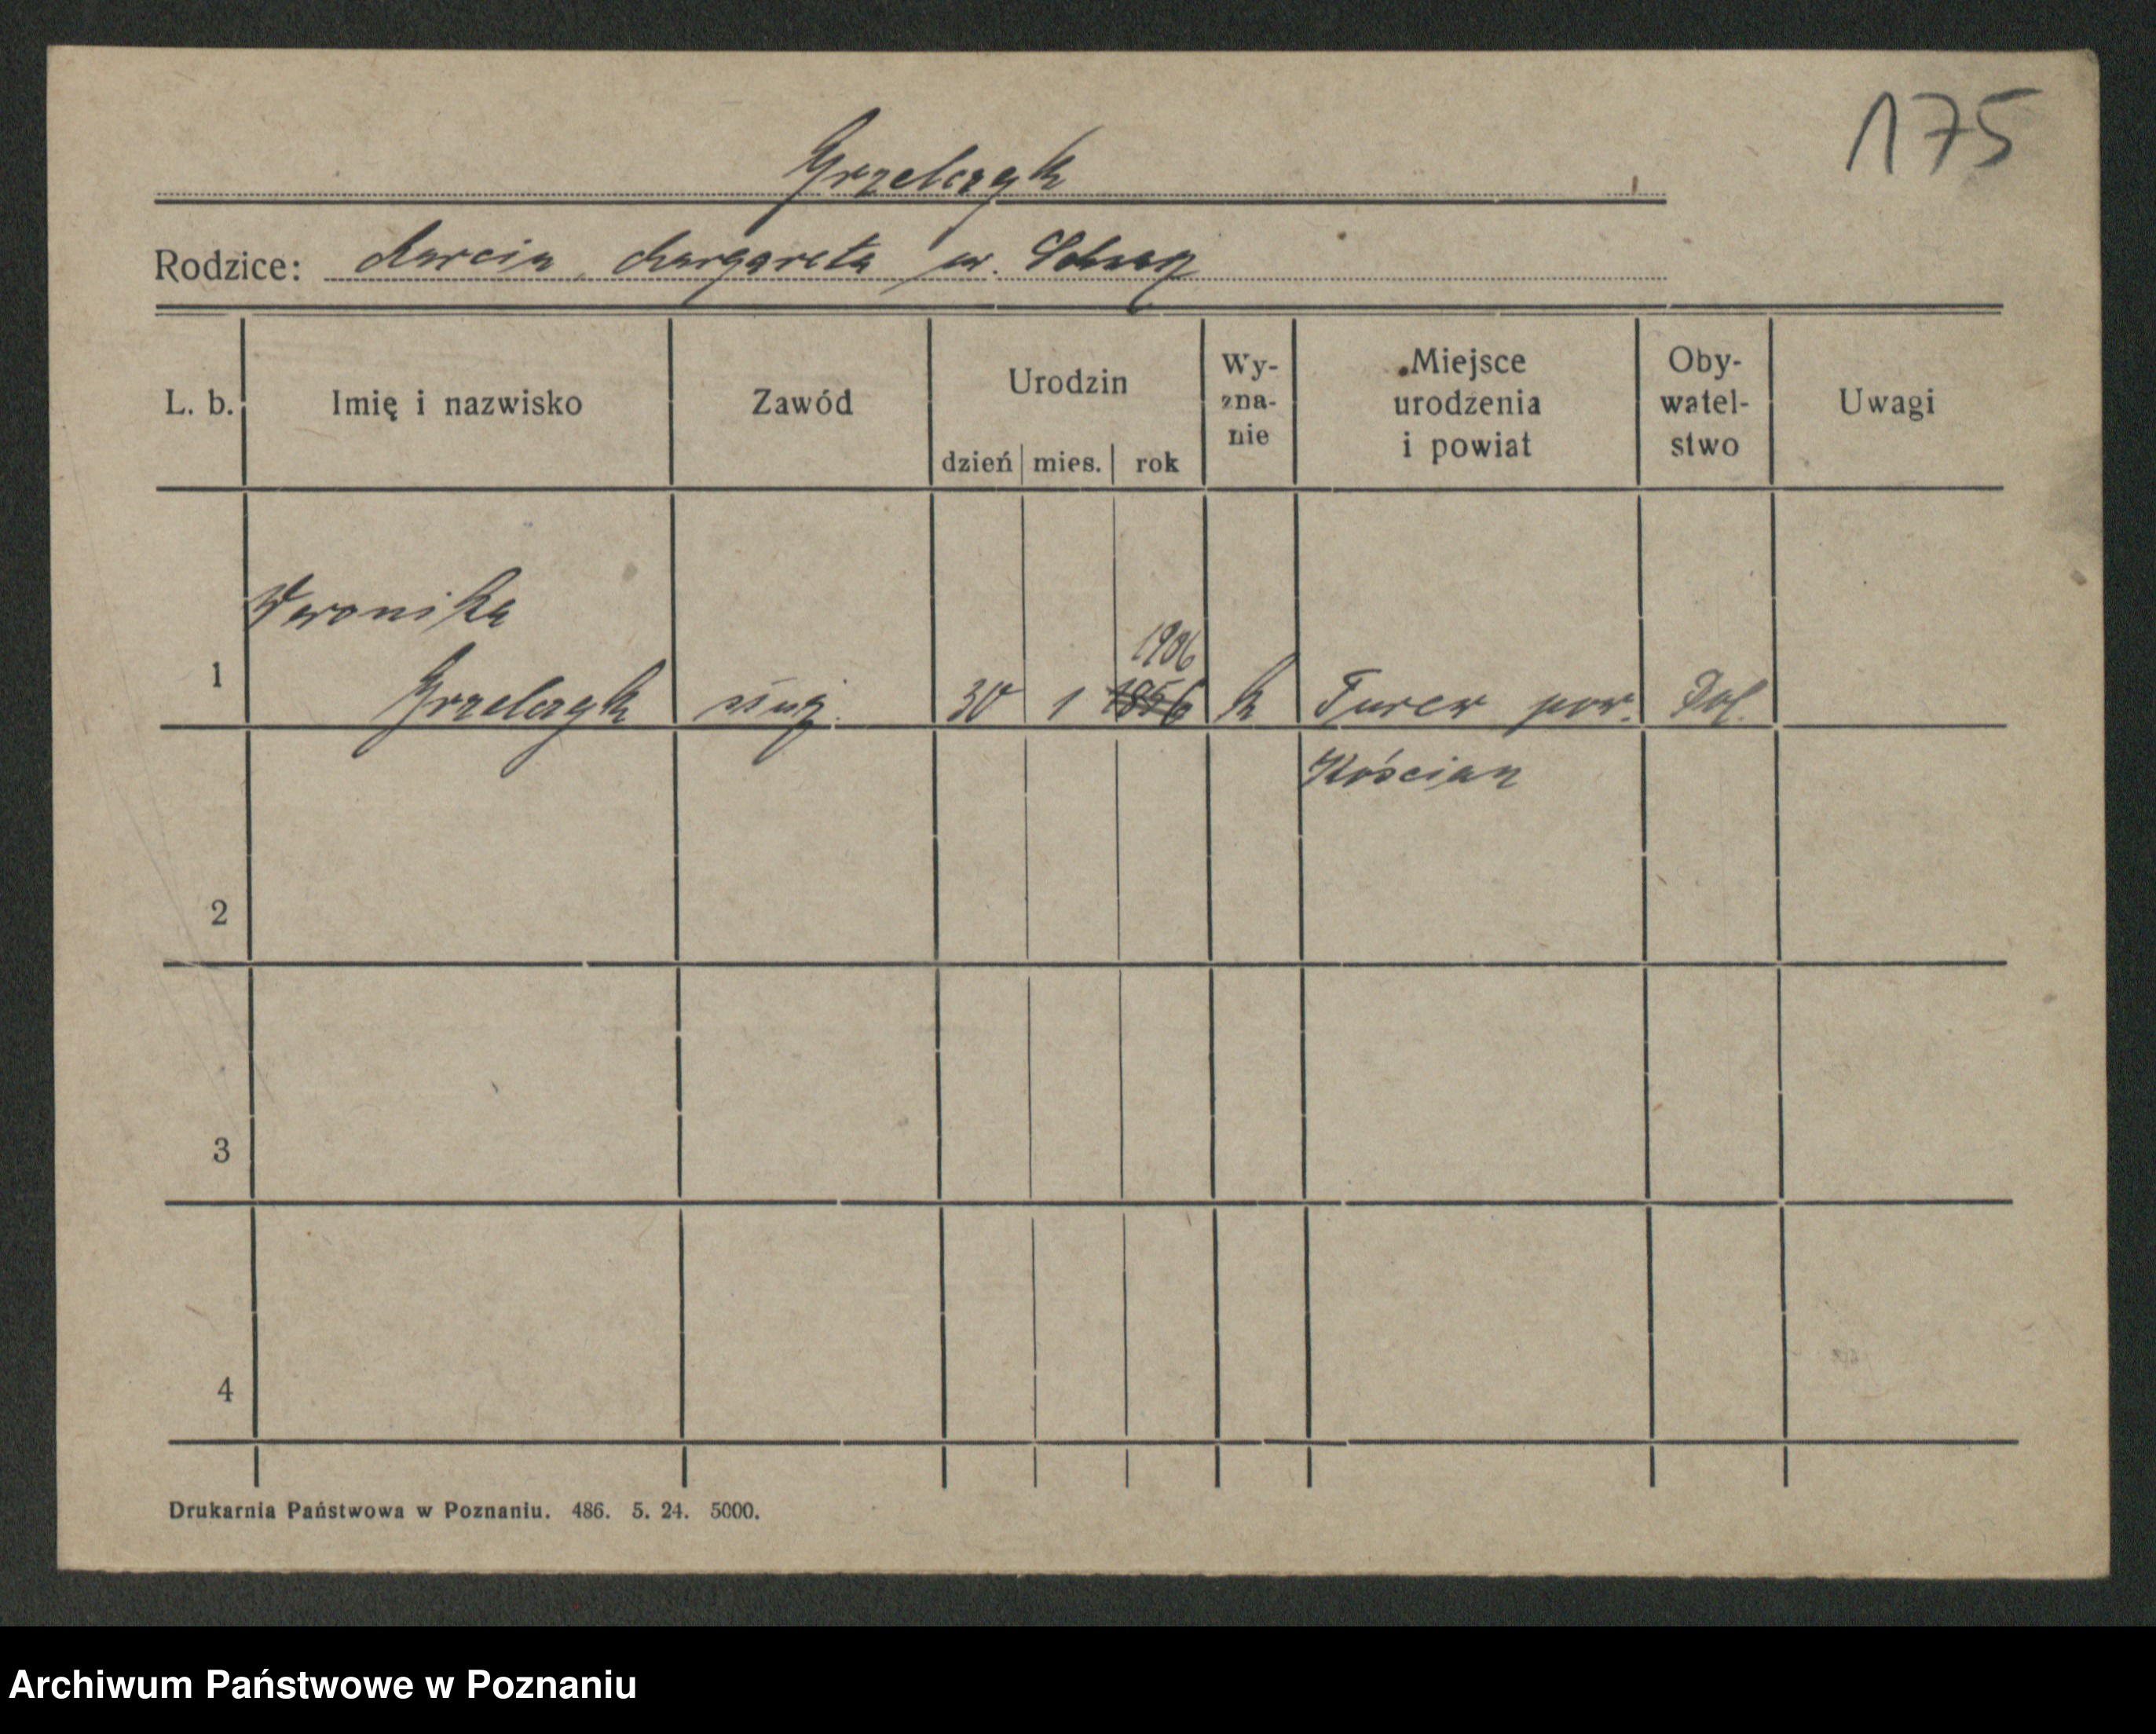 175
Grzelczyk
Rodzice: Marcin, Margareta ur.
L. b. Imię i nazwisko Zawód Urodzin dzień mies. rok Wy-zna-nie Miejsce urodzenia i powiat Oby-watel-stwo Uwagi
Weronika
1906
1 Grzelczyk służ. 30 1 1856 k Turew pow. Pol.
Kościan
2
3
4
Drukarnia Państwowa w Poznaniu. 486. 5. 24. 5000.
Archiwum Państwowe w Poznaniu